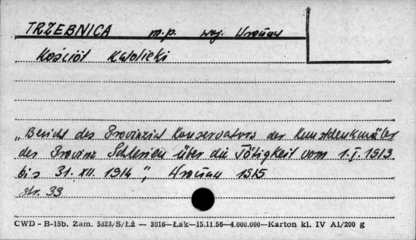 TRZEBNICA m.p. woj. Wrocław
Kościół Katolicki
„Bericht des Provinzial Konservators der Kunstdenkmäler
der Provinz Schlesien über die Tätigkeit vom 1.I.1913
bis 31.XII.1914", Wrocław 1915
str. 39
CWD - B-15b. Zam. 5823/S/ŁŻ — 3016—Łak—15.11.56—4.000.000—Karton kl. IV A1/200 g